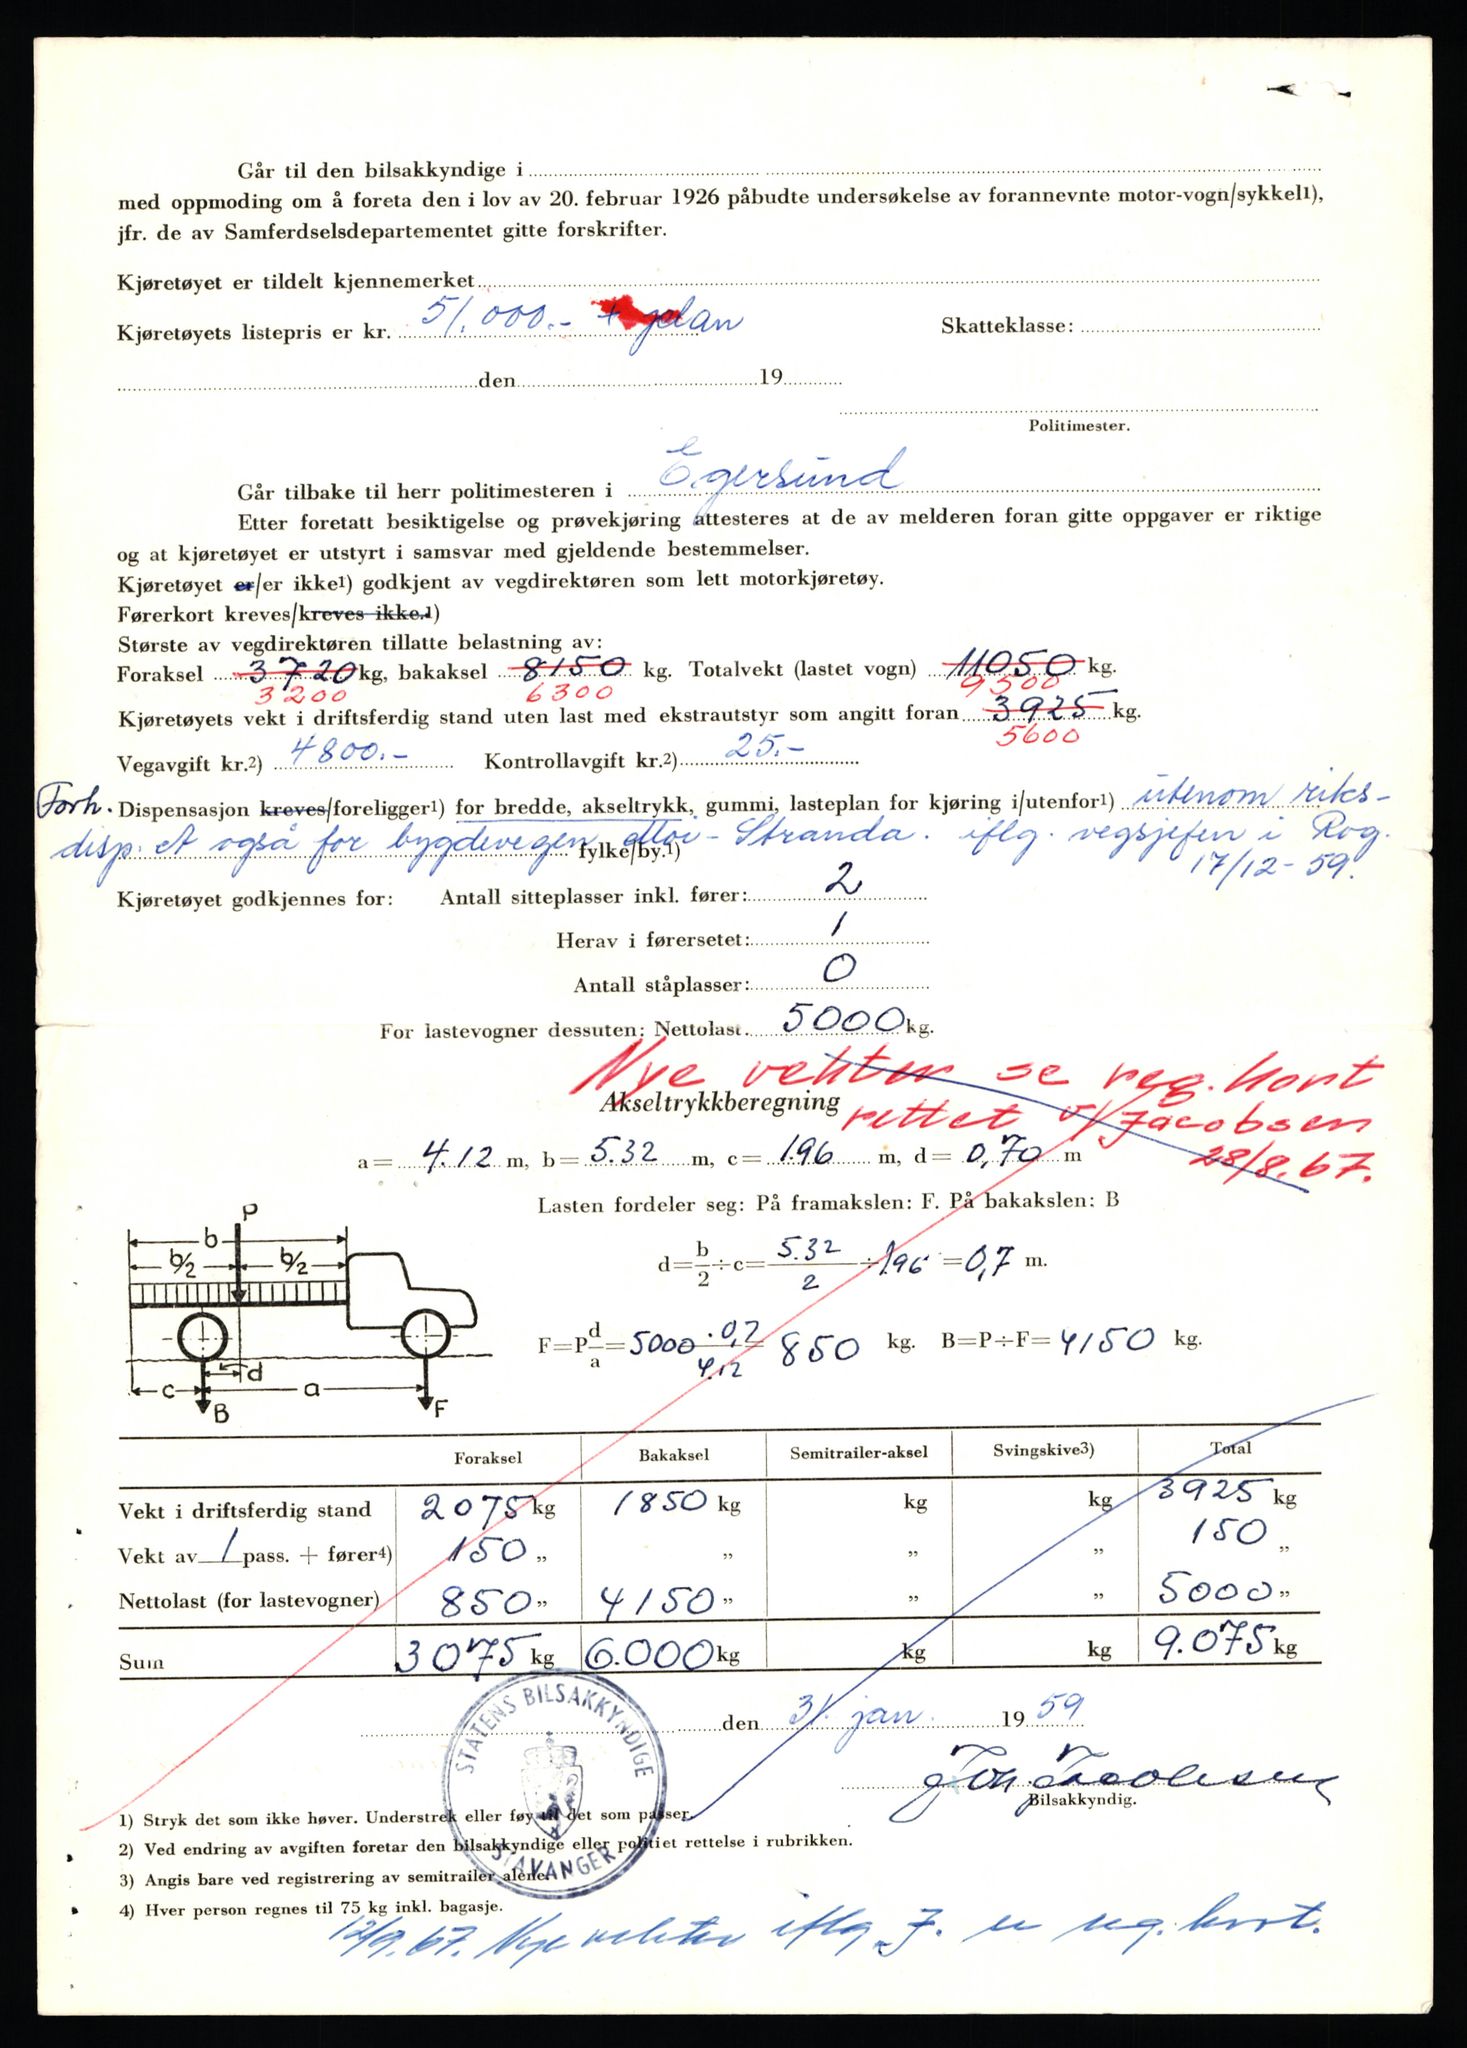 Går til den bilsakkyndige i
med oppmoding om å foreta den i lov av 20. februar 1926 påbudte undersøkelse av forannevnte motor-vogn/sykkel1),
jfr. de av Samferdselsdepartementet gitte forskrifter.
Kjøretøyet er tildelt kjennemerket
Kjøretøyets listepris er kr. 51.000.- + Skatteklasse:
den 19
Politimester.
Går tilbake til herr politimesteren i Egersund
Etter foretatt besiktigelse og prøvekjøring attesteres at de av melderen foran gitte oppgaver er riktige
og at kjøretøyet er utstyrt i samsvar med gjeldende bestemmelser.
Kjøretøyet er/er ikke1) godkjent av vegdirektøren som lett motorkjøretøy.
Førerkort kreves/kreves ikke.1)
Største av vegdirektøren tillatte belastning av:
Foraksel 3720 kg, bakaksel 8150 kg. Totalvekt (lastet vogn) 11050 kg.
3200 6300 9500
Kjøretøyets vekt i driftsferdig stand uten last med ekstrautstyr som angitt foran 3925 kg.
5600
Vegavgift kr.2) 4800.- Kontrollavgift kr.2) 25.-
Forh. Dispensasjon kreves/foreligger1) for bredde, akseltrykk, gummi, lasteplan for kjøring i/utenfor1) utenom riks-
disp. også for bygdevegen - Stranda. iflg. vegsjefen i Rog.
fylke/by.1) 17/12-59.
Kjøretøyet godkjennes for: Antall sitteplasser inkl. fører: 2
Herav i førersetet: 1
Antall ståplasser: 0
For lastevogner dessuten: Nettolast 5000 kg.
Nye vekter se reg. kort
Akseltrykkberegning
rettet v/Jacobsen
28/8.67.
a= 4.12 m, b= 5.32 m, c= 1.96 m, d= 0,70 m
Lasten fordeler seg: På framakslen: F. På bakakslen: B
d=b/2÷c= 5.32/2 ÷ 1.96 = 0,7 m.
F=P d/a= 5000 · 0,7/4.12 = 850 kg. B=P÷F= 4150 kg.
P
b
b/2 b/2
c d a
B F
Foraksel Bakaksel Semitrailer-aksel Svingskive3) Total
Vekt i driftsferdig stand 2075 kg 1850 kg kg kg 3925 kg
Vekt av 1 pass. + fører4) 150 „ „ „ „ 150 „
Nettolast (for lastevogner) 850 „ 4150 „ „ „ 5000 „
Sum 3075 kg 6.000 kg kg kg 9.075 kg
den 31. jan. 1959
STATENS BILSAKKYNDIGE
STAVANGER
Jacobsen
Bilsakkyndig.
1) Stryk det som ikke høver. Understrek eller føy til det som passer.
2) Ved endring av avgiften foretar den bilsakkyndige eller politiet rettelse i rubrikken.
3) Angis bare ved registrering av semitrailer alene.
4) Hver person regnes til 75 kg inkl. bagasje.
12/9.67. Nye vekter iflg. J. reg. kort.